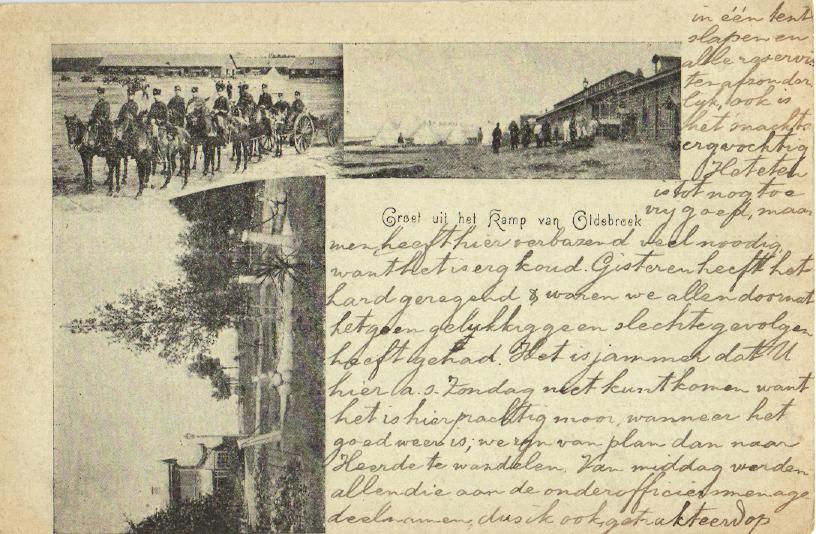 in één tent
slapen en
alle reservis
ten afzonder
lyk, ook is
het 'snachts
erg vochtig
Het eten
is tot nog toe
vry goed, maar
Groet uit het Kamp van Oldebroek
men heeft hier verbazend veel noodig,
want het is erg koud. Gisteren heeft het
hard geregend & waren we allen doornat
hetgeen gelukkig geen slechte gevolgen
heeft gehad. Het is jammer dat U
hier a.s. Zondag niet kunt komen want
het is hier prachtig mooi, wanneer het
goed weer is; we zyn van plan dan naar
Heerde te wandelen. Van middag werden
allen die aan de onderofficiersmenage
deelnamen, dus ik ook, getrakteerd op